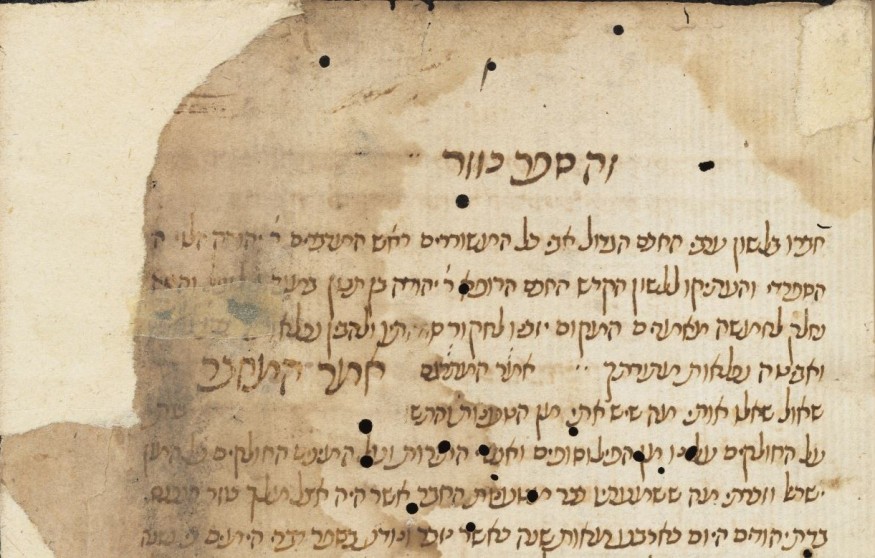 זה ספר כוזר
חברו בלשון ערב החכם הגדול אבי כל המשוררים ראש המדברים ר' יהודה הלוי
הספרדי והעתיקו ללשון הקדש החכם הרופא ר' יהודה בן תבון
חלק לחמשה מאמרים המקום יזכנו לחקור ולהבין
ואביטה נפלאות מתורתך אמר המעתיק אמר המחבר
שאול שאלו אותי מה שיש אתי מן הטענות והתשובות
על החולקים עלינו מן הפילוסופים ואנשי התורות ועל המינים החולקים
ישראל וזכרתי מה ששמעתיו כבר מטענות החבר אשר היה אצל מלך כוזר הנכנס
בדת יהודים היום כארבע מאות שנה כאשר נזכר ונודע בספר דברי הימים